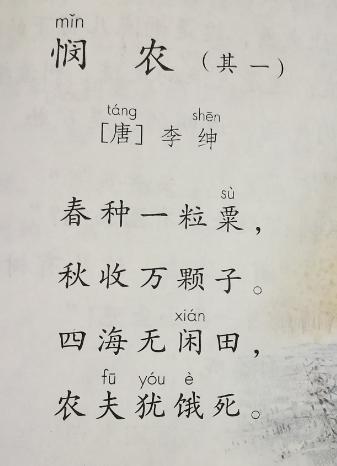 mǐn
悯 农 (其一)
táng shēn
[唐] 李 绅
sù
春种一粒粟，
秋收万颗子。
xián
四海无闲田，
fū yóu è
农夫犹饿死。